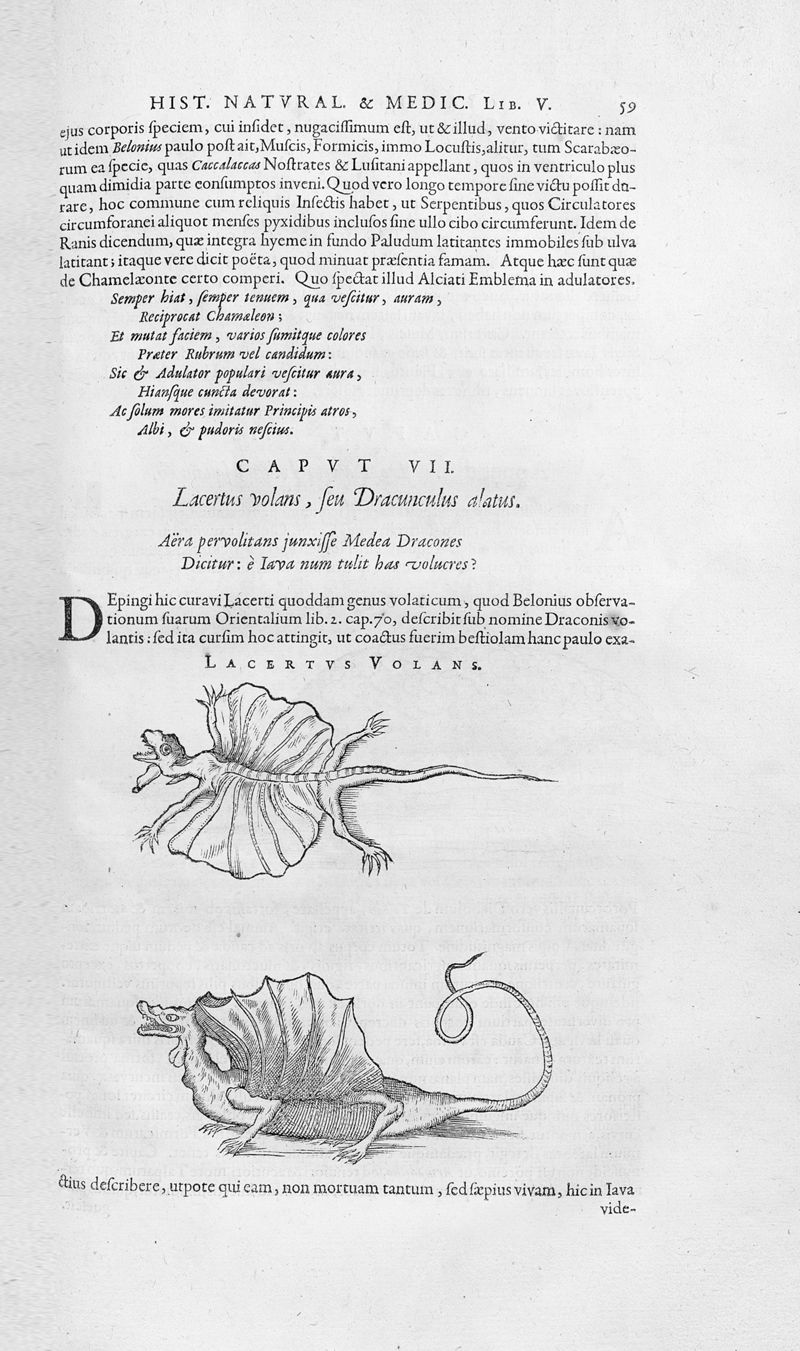 HIST. NATVRAL. & MEDIC. LIB. V. 59
ejus corporis ſpeciem, cui inſidet, nugaciſſimum eſt, ut & illud, vento victitare: nam
ut idem Belonius paulo poſt ait, Muſcis, Formicis, immo Locuſtis, alitur, tum Scarabæo-
rum ea ſpecie, quas Caccalaccas Noſtrates & Luſitani appellant, quos in ventriculo plus
quam dimidia parte conſumptos inveni. Quod vero longo tempore ſine victu poſſit du-
rare, hoc commune cum reliquis Inſectis habet, ut Serpentibus, quos Circulatores
circumforanei aliquot menſes pyxidibus incluſos ſine ullo cibo circumferunt. Idem de
Ranis dicendum, quæ integra hyeme in fundo Paludum latitantes immobiles ſub ulva
latitant; itaque vere dicit poëta, quod minuat præſentia famam. Atque hæc ſunt quæ
de Chamelæonte certo comperi. Quo ſpectat illud Alciati Emblema in adulatores.
Semper hiat, ſemper tenuem, qua veſcitur, auram,
Reciprocat Chamæleon;
Et mutat faciem, varios ſumitque colores
Præter Rubrum vel candidum:
Sic & Adulator populari veſcitur aura,
Hianſque cuncta devorat:
Ac ſolum mores imitatur Principis atros,
Albi, & pudoris neſcius.
CAPVT VII.
Lacertus volans, ſeu Dracunculus alatus.
Aëra pervolitans junxiſſe Medea Dracones
Dicitur: è Iava num tulit has volucres?
DEpingi hic curavi Lacerti quoddam genus volaticum, quod Belonius obſerva-
tionum ſuarum Orientalium lib. 2. cap. 70, deſcribit ſub nomine Draconis vo-
lantis: ſed ita curſim hoc attingit, ut coactus fuerim beſtiolam hanc paulo exa-
LACERTVS VOLANS.
ctius deſcribere, utpote qui eam, non mortuam tantum, ſed ſæpius vivam, hic in Iava
vide-